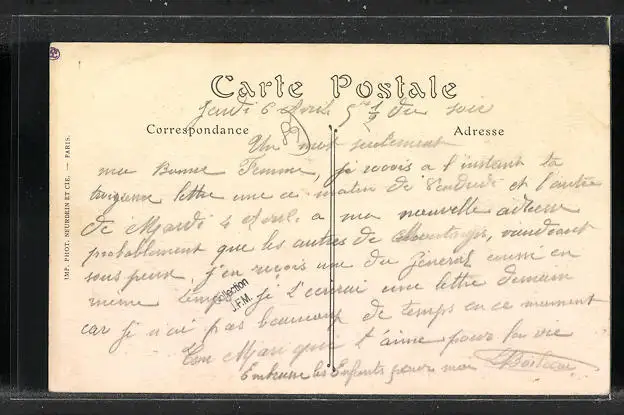 Carte Postale
Jeudi 6 Avril 5 h 1/2 du soir
Correspondance
Adresse
Un mot seulement
ma Bonne Femme, je reçois a l'instant ta
troisieme lettre une ce matin de Vendredi et l'autre
de Mardi 4 Avril a ma nouvelle adresse
probablement que les autres de viendront
sous peu, j'en reçois une du Général aussi en
meme temps je t'ecrirai une lettre demain
car je n'ai pas beaucoup de temps en ce moment
Ton Mari qui t'aime pour la vie
Embrasse les Enfants pour moi
Collection
J.F.M.
IMP. PHOT. NEURDEIN ET CIE. — PARIS.